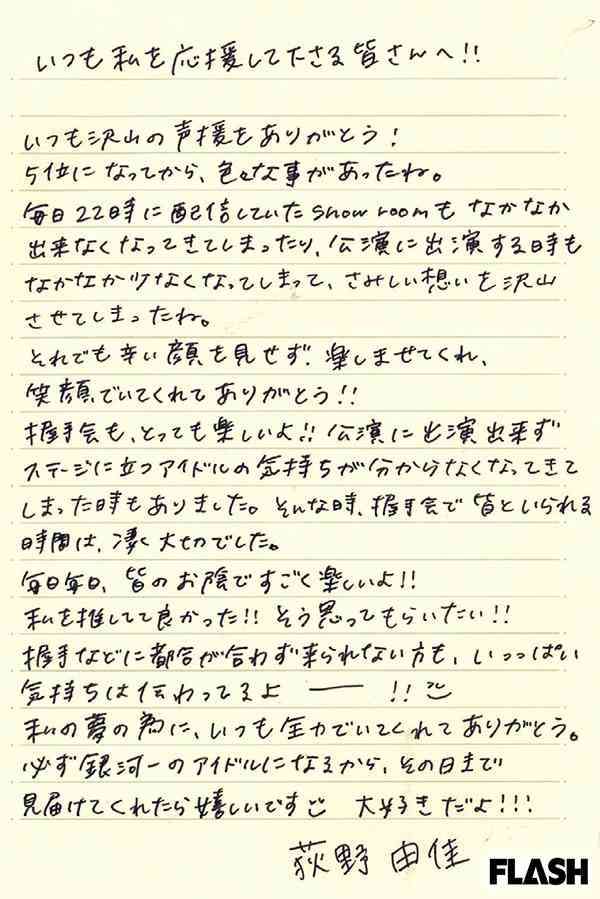 いつも私を応援して下さる皆さんへ!!
いつも沢山の声援をありがとう!
5位になってから、色々な事があったね。
毎日22時に配信していたshow roomもなかなか
出来なくなってきてしまったり、公演に出演する日時も
なかなか少なくなってしまって、さみしい想いを沢山
させてしまったね。
それでも辛い顔を見せず、楽しませてくれ、
笑顔でいてくれてありがとう!!
握手会も、とっても楽しいよ!! 公演に出演出来ず
ステージに立つアイドルの気持ちが分からなくなってきて
しまった時もありました。そんな時、握手会で皆といられる
時間は、凄く大切でした。
毎日毎日、皆のお陰ですごく楽しいよ!!
私を推してて良かった!! そう思ってもらいたい!!
握手などに都合が合わず来られない方も、いっっぱい
気持ちは伝わってるよ ー !!
私の夢の為に、いつも全力でいてくれてありがとう。
必ず銀河一のアイドルになるから、その日まで
見届けてくれたら嬉しいです 大好きだよ!!!
荻野 由佳
FLASH